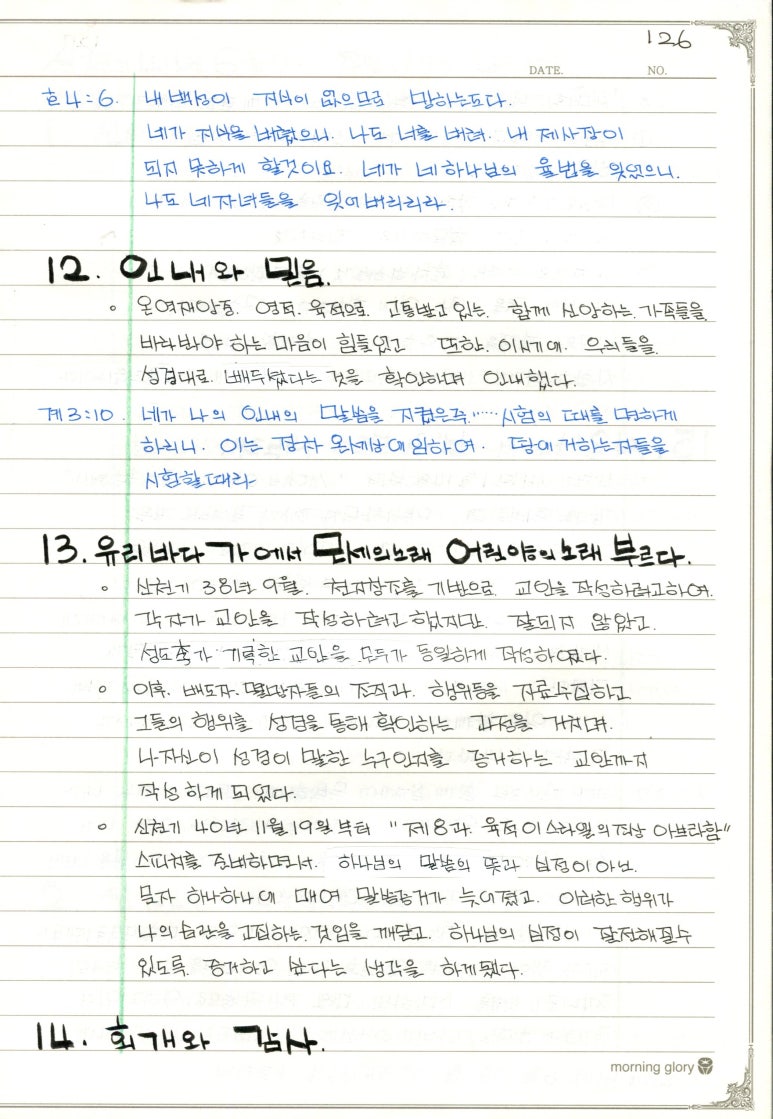 126
DATE. NO.
호4:6. 내 백성이 지식이 없으므로 망하는도다.
네가 지식을 버렸으니. 나도 너를 버려. 내 제사장이
되지 못하게 할것이요. 네가 네하나님의 율법을 잊었으니.
나도 네자녀들을 잊어버리리라.
12. 인내와 믿음.
◦ 온역재앙중. 영적. 육적으로. 고통받고 있는. 함께 신앙하는 가족들을
바라봐야 하는 마음이 힘들었고 또한. 이시기에. 우리들을
성경대로. 빼두셨다는 것을 확인하며 인내했다.
계3:10. 네가 나의 인내의 말씀을 지켰은즉."……시험의 때를 면하게
하리니. 이는 장차 온세상에임하여. 땅에 거하는자들을
시험할때라
13. 유리바다 가에서 모세의노래 어린양의 노래 부르다.
◦ 신천기 38년 9월. 천지창조를 기반으로 교안을 작성하려고하여.
각자가 교안을 작성하려고 했지만. 잘되지 않았고.
성도 가 기록한 교안을 모두가 동일하게 작성하였다.
◦ 이후. 배도자. 멸망자들의 조직과. 행위등을 자료수집하고
그들의 행위를 성경을 통해 확인하는 과정을 거치며.
나자신이 성경이 말한 누구인지를 증거하는 교안까지
작성 하게 되었다.
◦ 신천기 40년 11월 19일 부터 "제8과. 육적이스라엘의 조상 아브라함"
스피치를 준비하면서. 하나님의 말씀의 뜻과 심정이 아닌.
문자 하나하나 에 매여 말씀증거가 늦어졌고. 이러한 행위가
나의 습관을 고집하는 것임을 깨닫고. 하나님의 심정이 잘전해질수
있도록. 증거하고 싶다는 생각을 하게됐다.
14. 회개와 감사.
morning glory